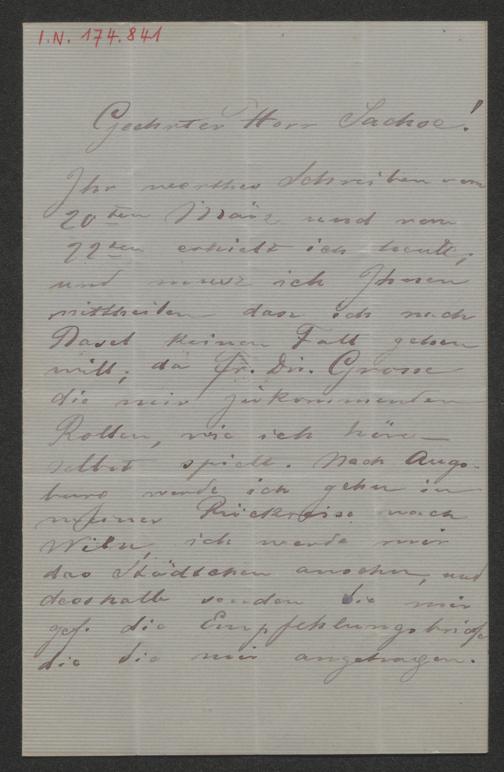 I.N. 174.841
Geehrter Herr Sachse!
Ihr werthes Schreiben vom
20ten März und vom
22ten erhielt ich heute,
und muss ich Ihnen
mittheilen dass ich nach
Basel keinen Fall gehen
will, da Fr. Dir. Grosse
die mir zukommenden
Rollen, wie ich höre
selbst spielt. Nach Augs-
burg werde ich gehen in
meiner Rückreise nach
Wien, ich werde mir
das Städtchen ansehen, und
desshalb senden Sie mir
gef. die Empfehlungsbriefe
die Sie mir angetragen.